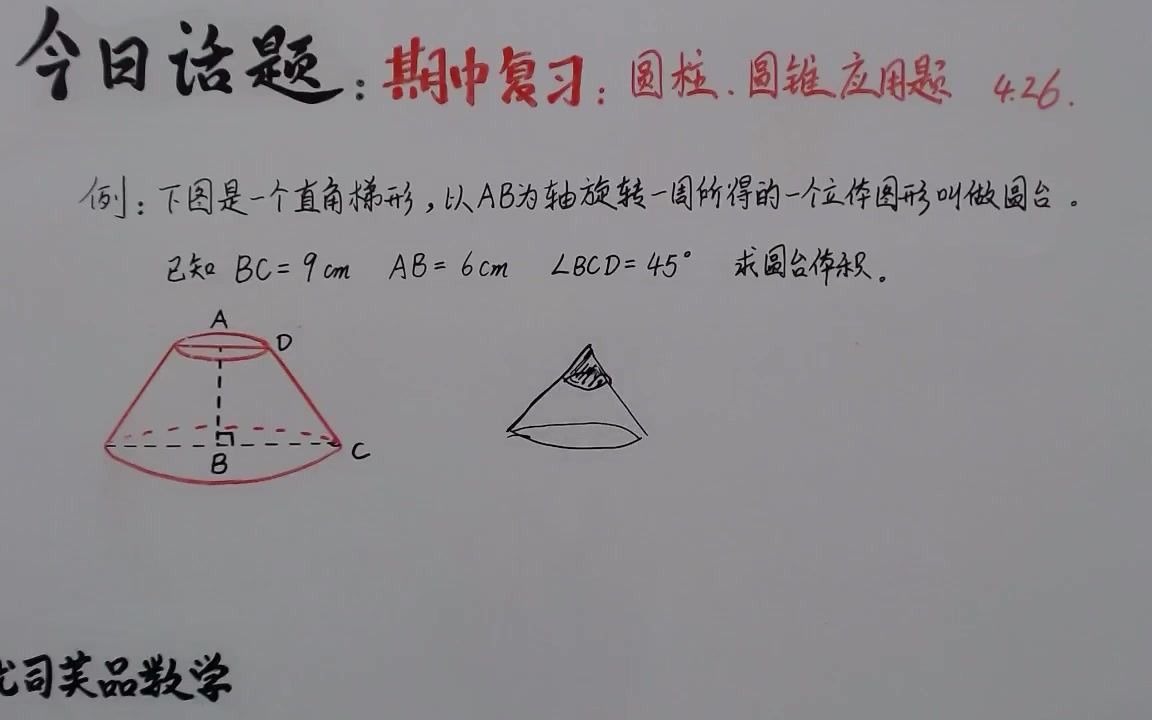 今日话题：期中复习：圆柱、圆锥应用题 4.26.
例：下图是一个直角梯形，以AB为轴旋转一周所得的一个立体图形叫做圆台。
已知 BC=9cm AB=6cm ∠BCD=45° 求圆台体积。
A
D
B
C
司芙品数学